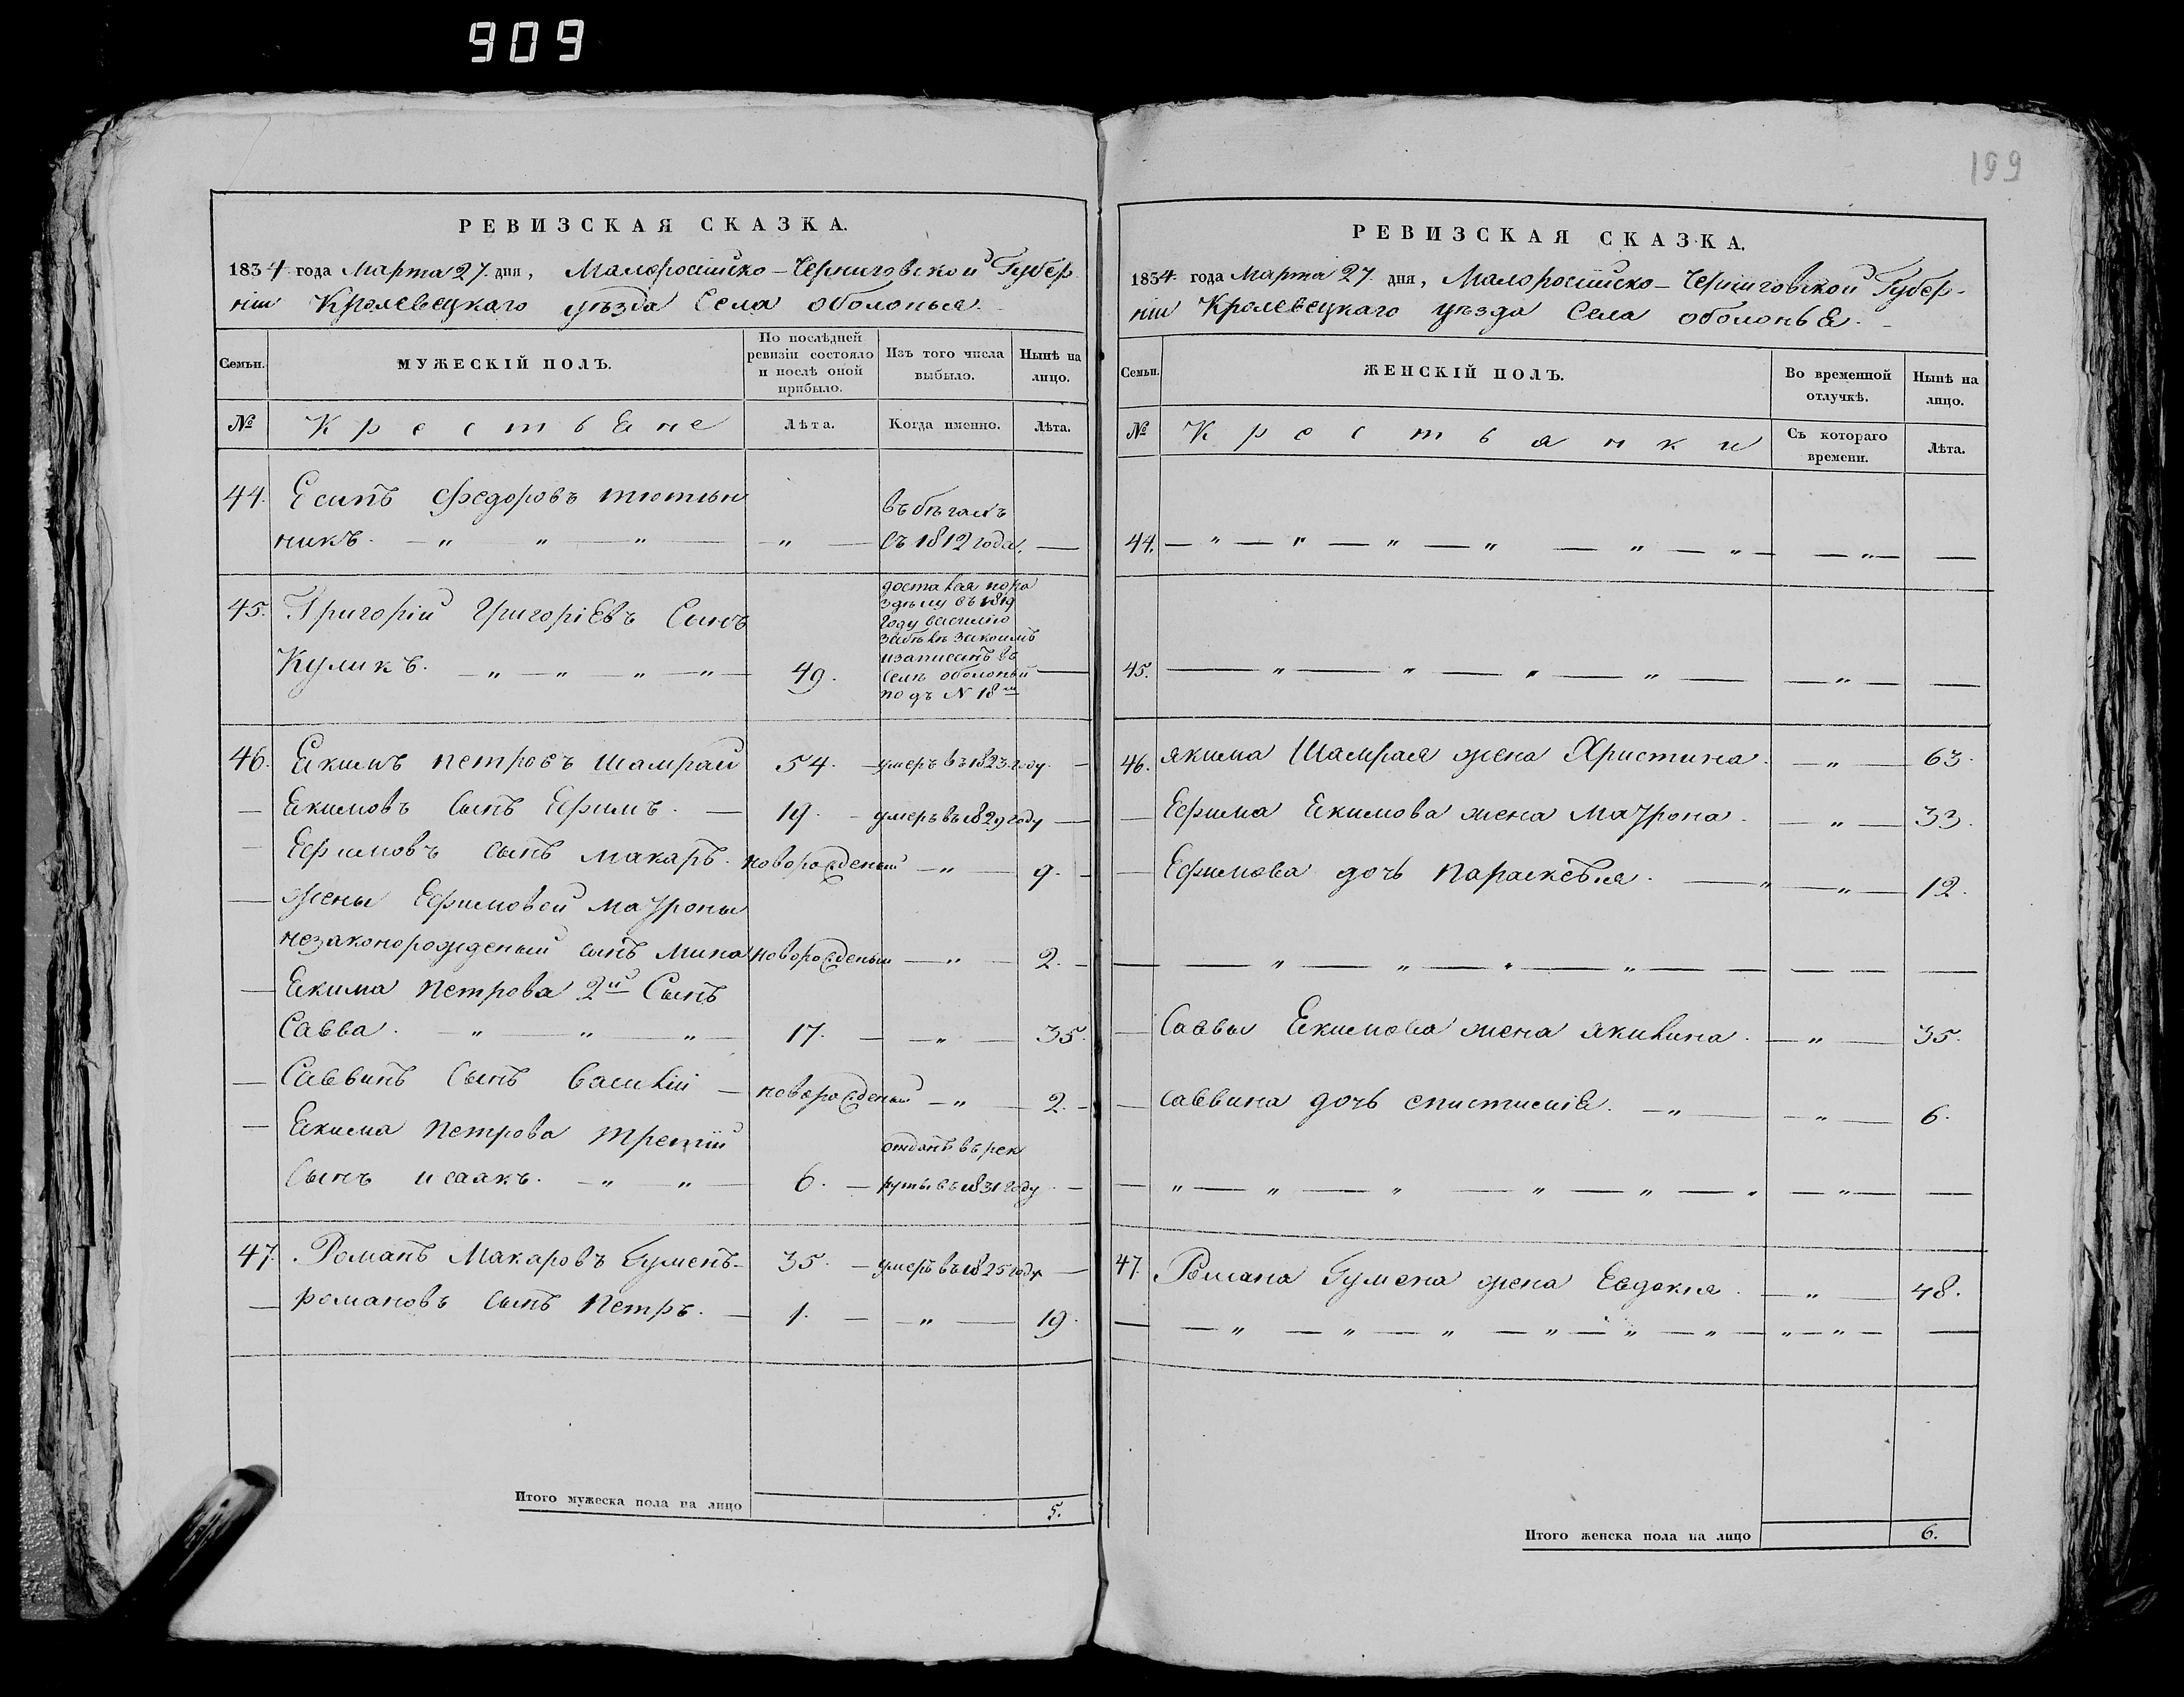 909
199
РЕВИЗСКАЯ СКАЗКА.
1834 года Марта 27. дня, Малоросiйско-Черниговской Губер
нiи Кролевецкаго уѣзда Села оболонья.
Семьи.
МУЖЕСКІЙ ПОЛЪ.
По послѣдней ревизіи состояло и послѣ оной прибыло.
Изъ того числа выбыло.
Нынѣ на лицо.
№
Крестьяне
Лѣта.
Когда именно.
Лѣта.
44. Есипъ Федоровъ тютюн
въ бѣгахъ
никъ. — " — " — " — съ 1812 года. —
45. Григорій Григоріевъ Сынъ
Куликъ. — " — " — " — " — 49.
году
и записанъ въ
селѣ оболоньи
подъ N 18м
46. Якимъ петровъ шамрай 54. — умеръ въ 1823 году. —
— Якимовъ сынъ Ефимъ. — 19. — умеръ въ 1829 году —
— Ефимовъ сынъ макаръ. новорожденый — " — 9. —
— Жены Ефимовой мауроны
незаконорожденый сынъ мина новорожденый — " — 2. —
— Якима петрова 2й Сынъ
Савва. — " — " — " — 17. — " — 35.
— Саввинъ сынъ василій — новорожденый — " — 2. —
— Якима петрова третій
отданъ въ рек
сынъ исаакъ. — " — " — 6. — руты въ 1831 году —
47. Романъ Макаровъ Гуменъ- 35. — умеръ въ 1825 году —
— романовъ сынъ петръ. — 1. — " — 19.
Итого мужеска пола на лицо 5.
РЕВИЗСКАЯ СКАЗКА.
1834 года Марта 27. дня, Малоросiйско-Черниговской Губер-
нiи Кролевецкаго уѣзда Села оболонья.
Семьи.
ЖЕНСКІЙ ПОЛЪ.
Во временной отлучкѣ.
Нынѣ на лицо.
№
Крестьянки
Съ котораго времени.
Лѣта.
44. — " — " — " — " — " — " — " — —
45. — " — " — " — " — " — —
46. якима Шамрая жена Христина. — " — 63.
— Ефима Якимова жена маурона. — " — 33.
— Ефимова дочь параскевія. — " — " — 12.
— — " — " — " — " — — — —
— Саввы Якимова жена якилина. — " — 35.
— саввина дочь епистимія. — " — " — 6.
— " — " — " — " — " — " — " — —
47. Романа Гумена жена Евдокия. — " — 48.
— — " — " — " — " — " — " — " — " — —
Итого женска пола на лицо 6.